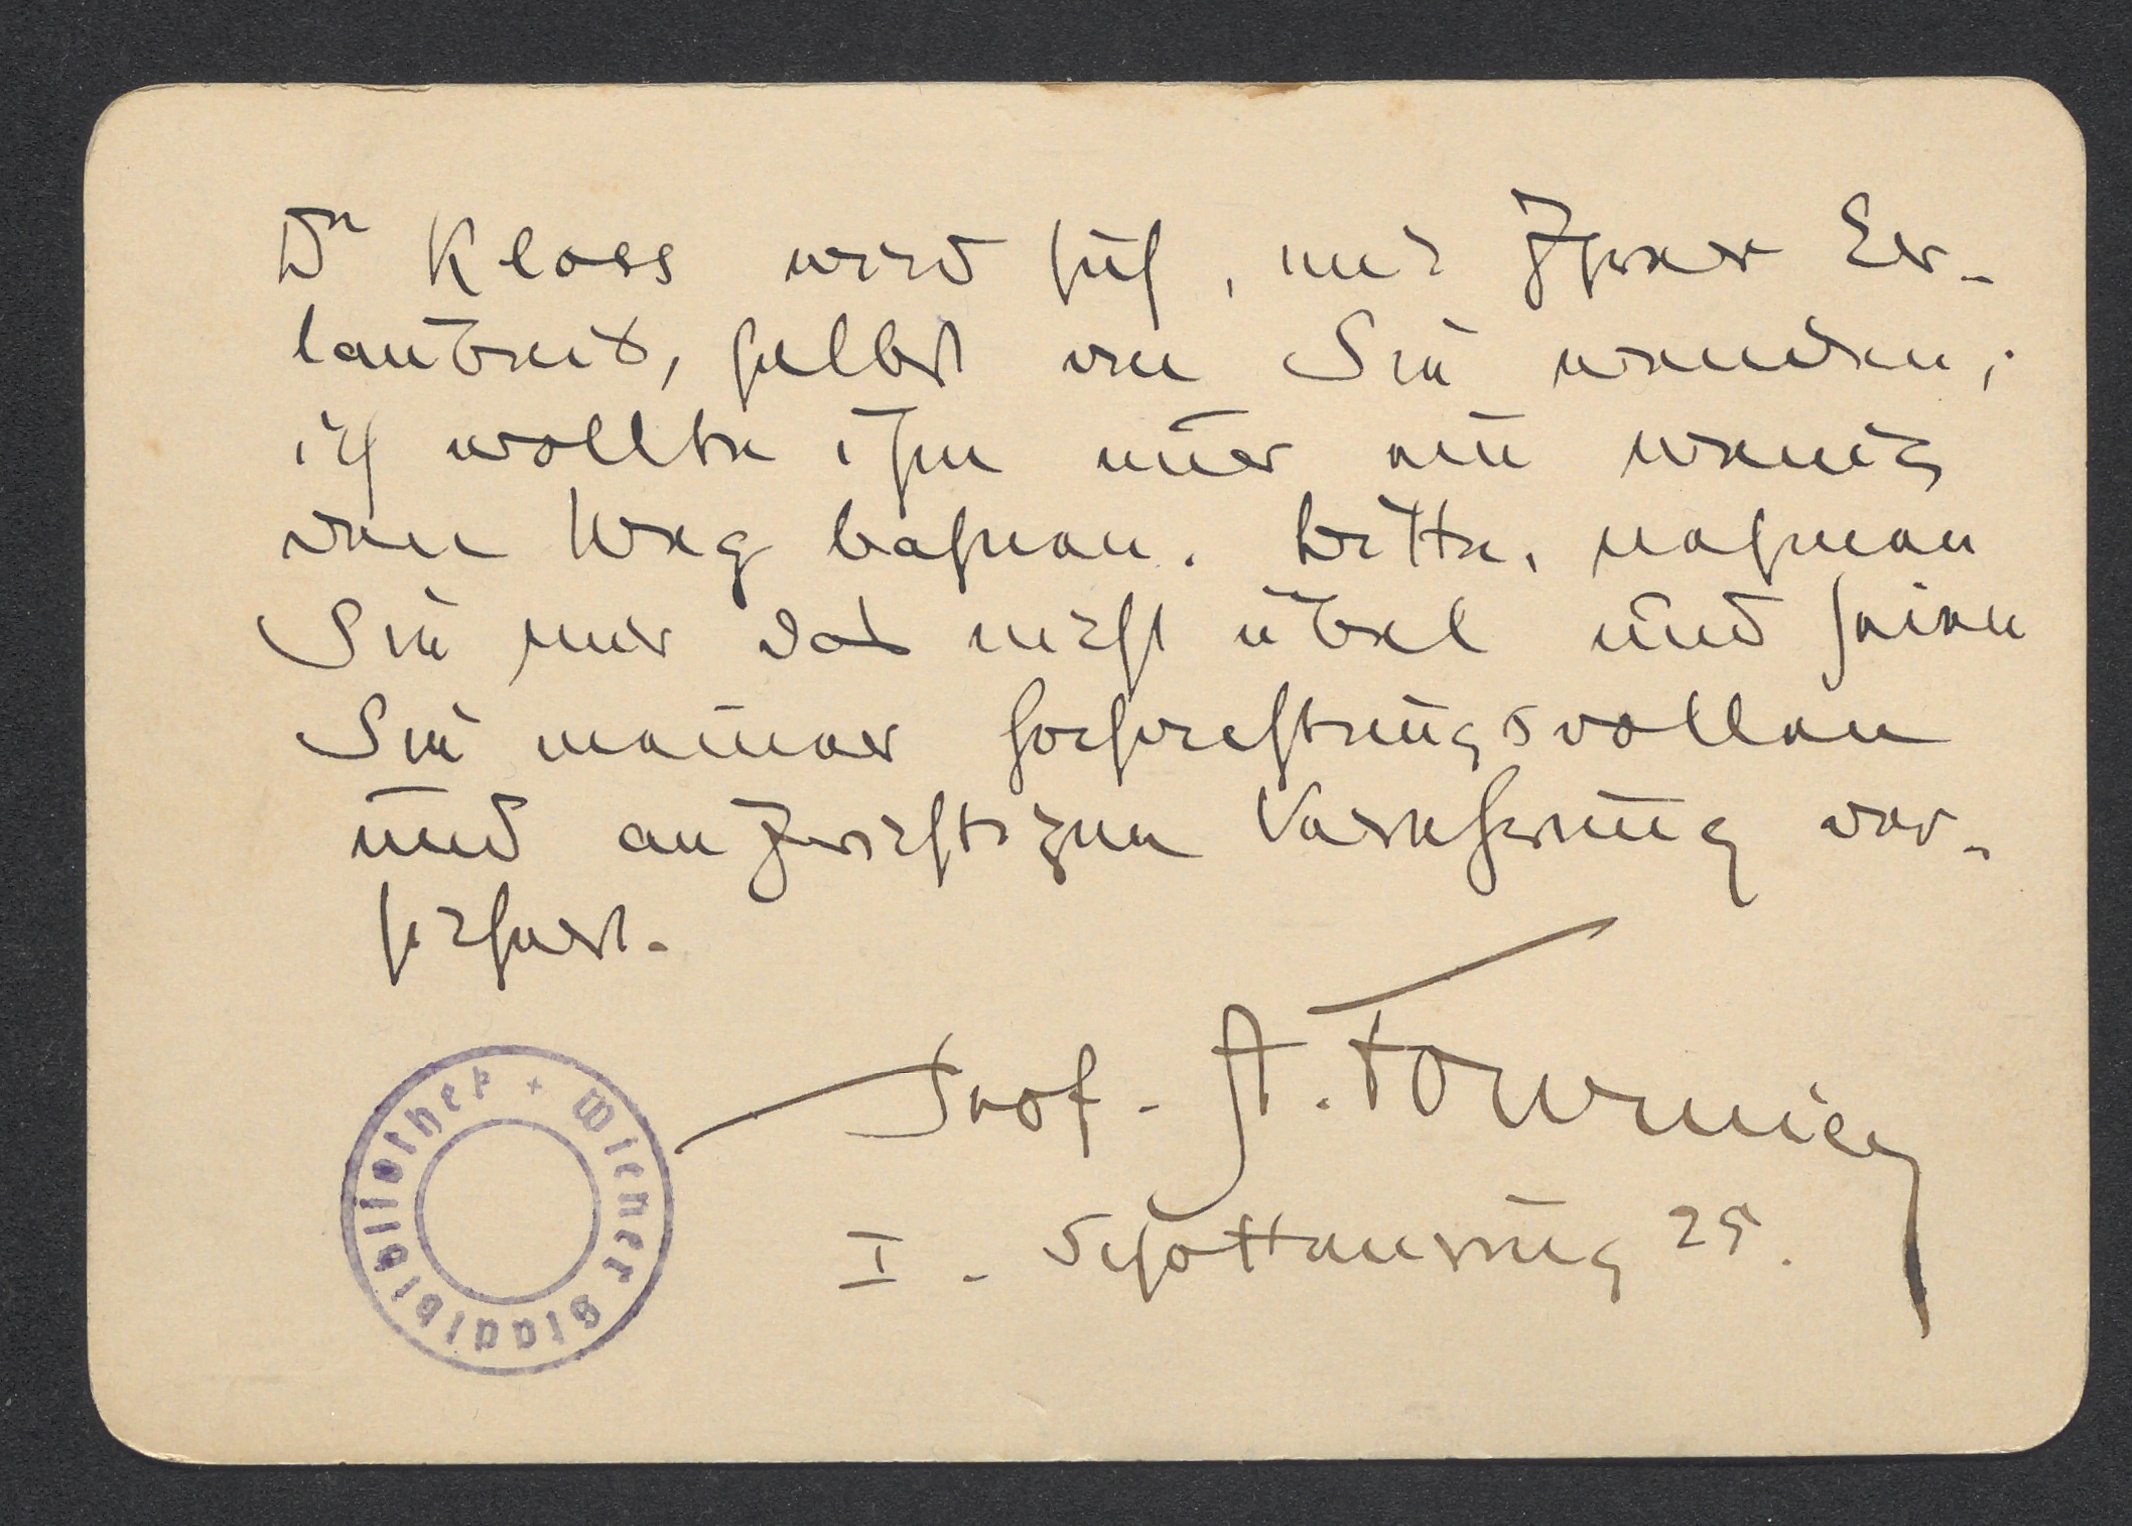 Dr Kloss wird sich, mit Ihrer Er-
laubnis, selbst an Sie wenden;
ich wollte ihm nur ein wenig
den Weg bahnen. Bitte, nehmen
Sie mir das nicht übel und seien
Sie meiner hochachtungsvollen
und aufrichtigen Verehrung ver-
sichert.
Prof. A. Fournier
I. Schottenring 25.
Wiener Stadtbibliothek +